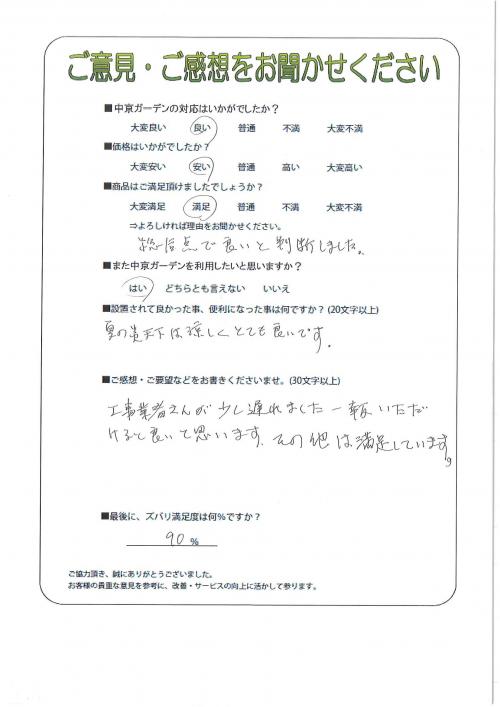 ご意見・ご感想をお聞かせください
■中京ガーデンの対応はいかがでしたか？
大変良い 良い 普通 不満 大変不満
■価格はいかがでしたか？
大変安い 安い 普通 高い 大変高い
■商品はご満足頂けましたでしょうか？
大変満足 満足 普通 不満 大変不満
⇒よろしければ理由をお聞かせください。
総合点で良いと判断しました。
■また中京ガーデンを利用したいと思いますか？
はい どちらとも言えない いいえ
■設置されて良かった事、便利になった事は何ですか？(20文字以上)
夏の炎天下は涼しくとても良いです。
■ご感想・ご要望などをお書きくださいませ。(30文字以上)
工事業者さんが少し遅れました一報いただ
けると良いと思います。その他は満足しています。
■最後に、ズバリ満足度は何%ですか？
90 %
ご協力頂き、誠にありがとうございました。
お客様の貴重な意見を参考に、改善・サービスの向上に活かして参ります。